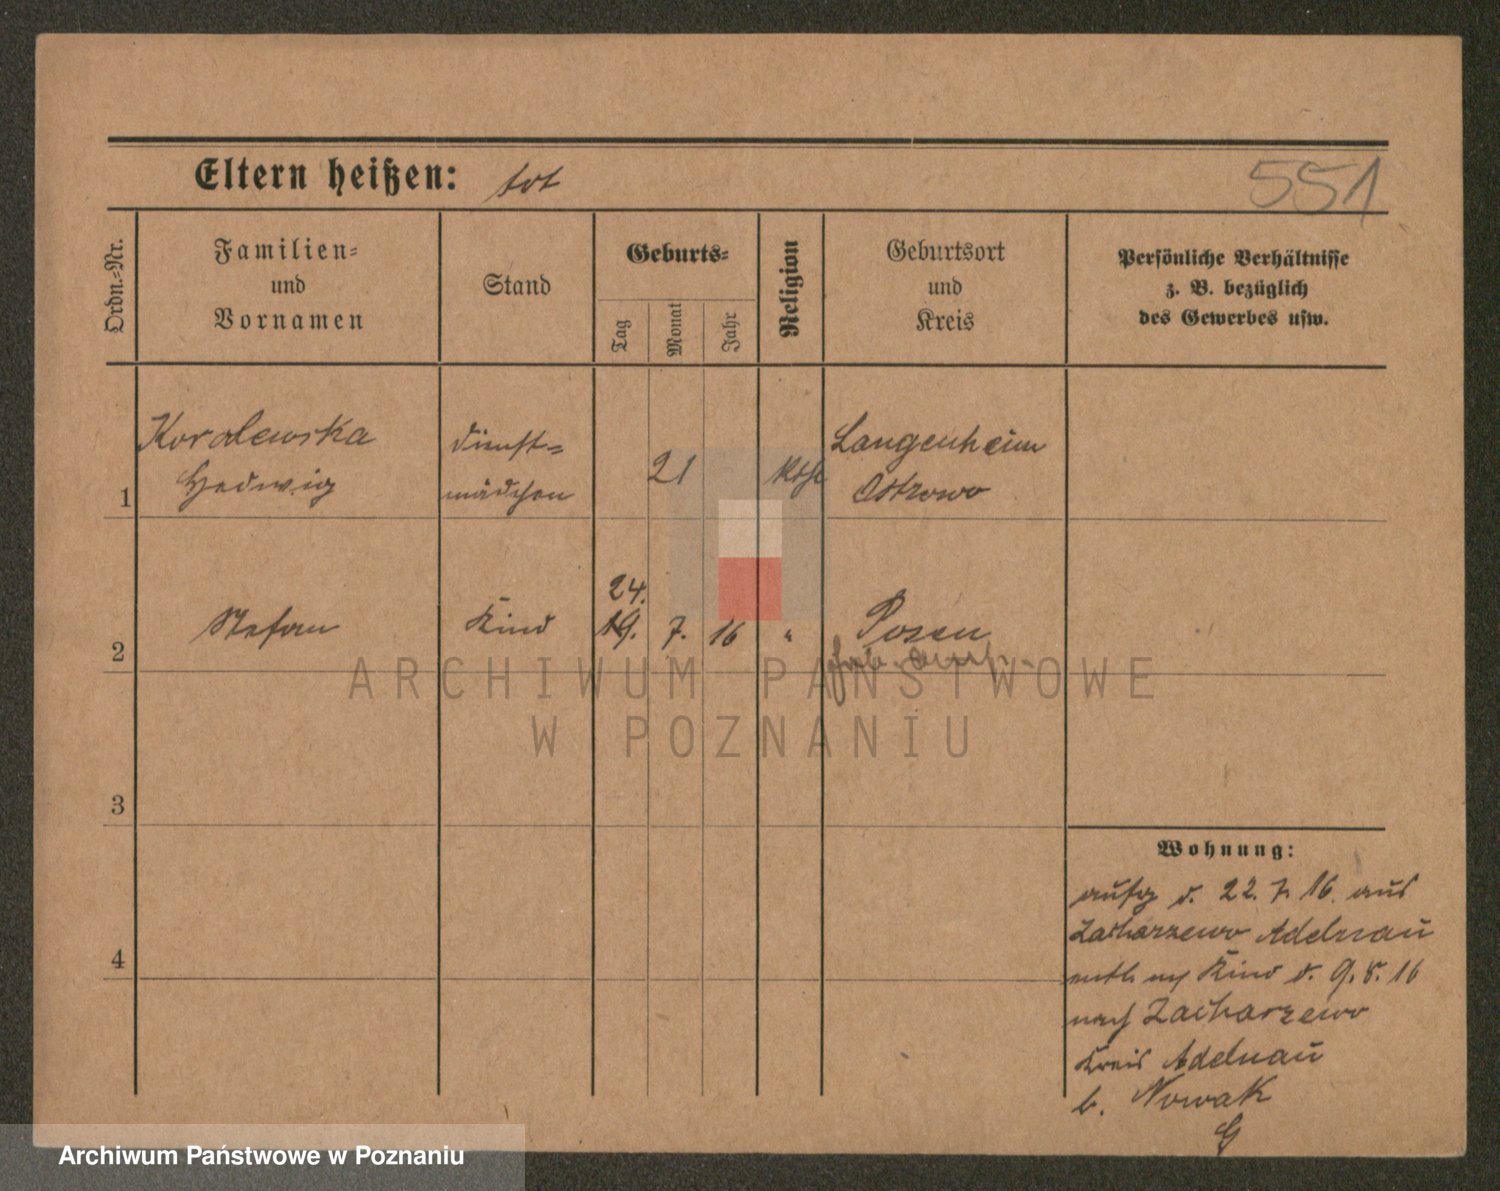 Eltern heißen: tot
551
Ordn.-Nr.
Familien-
und
Vornamen
Stand
Geburts-
Tag
Monat
Jahr
Religion
Geburtsort
und
Kreis
Persönliche Verhältnisse
z. B. bezüglich
des Gewerbes usw.
Koralewska
Hedwig
Dienst-
mädchen
21
kth
Langenheim
Ostrowo
1
24.
Stefan
Kind
19. 7. 16
"
Posen
2
ARCHIWUM PAŃSTWOWE
W POZNANIU
3
Wohnung:
aufg d. 22. 7. 16. aus
Zacharzewo Adelnau
entl. Kind d. 9. 8. 16
nach Zacharzewo
Kreis Adelnau
b. Nowak
G
4
Archiwum Państwowe w Poznaniu